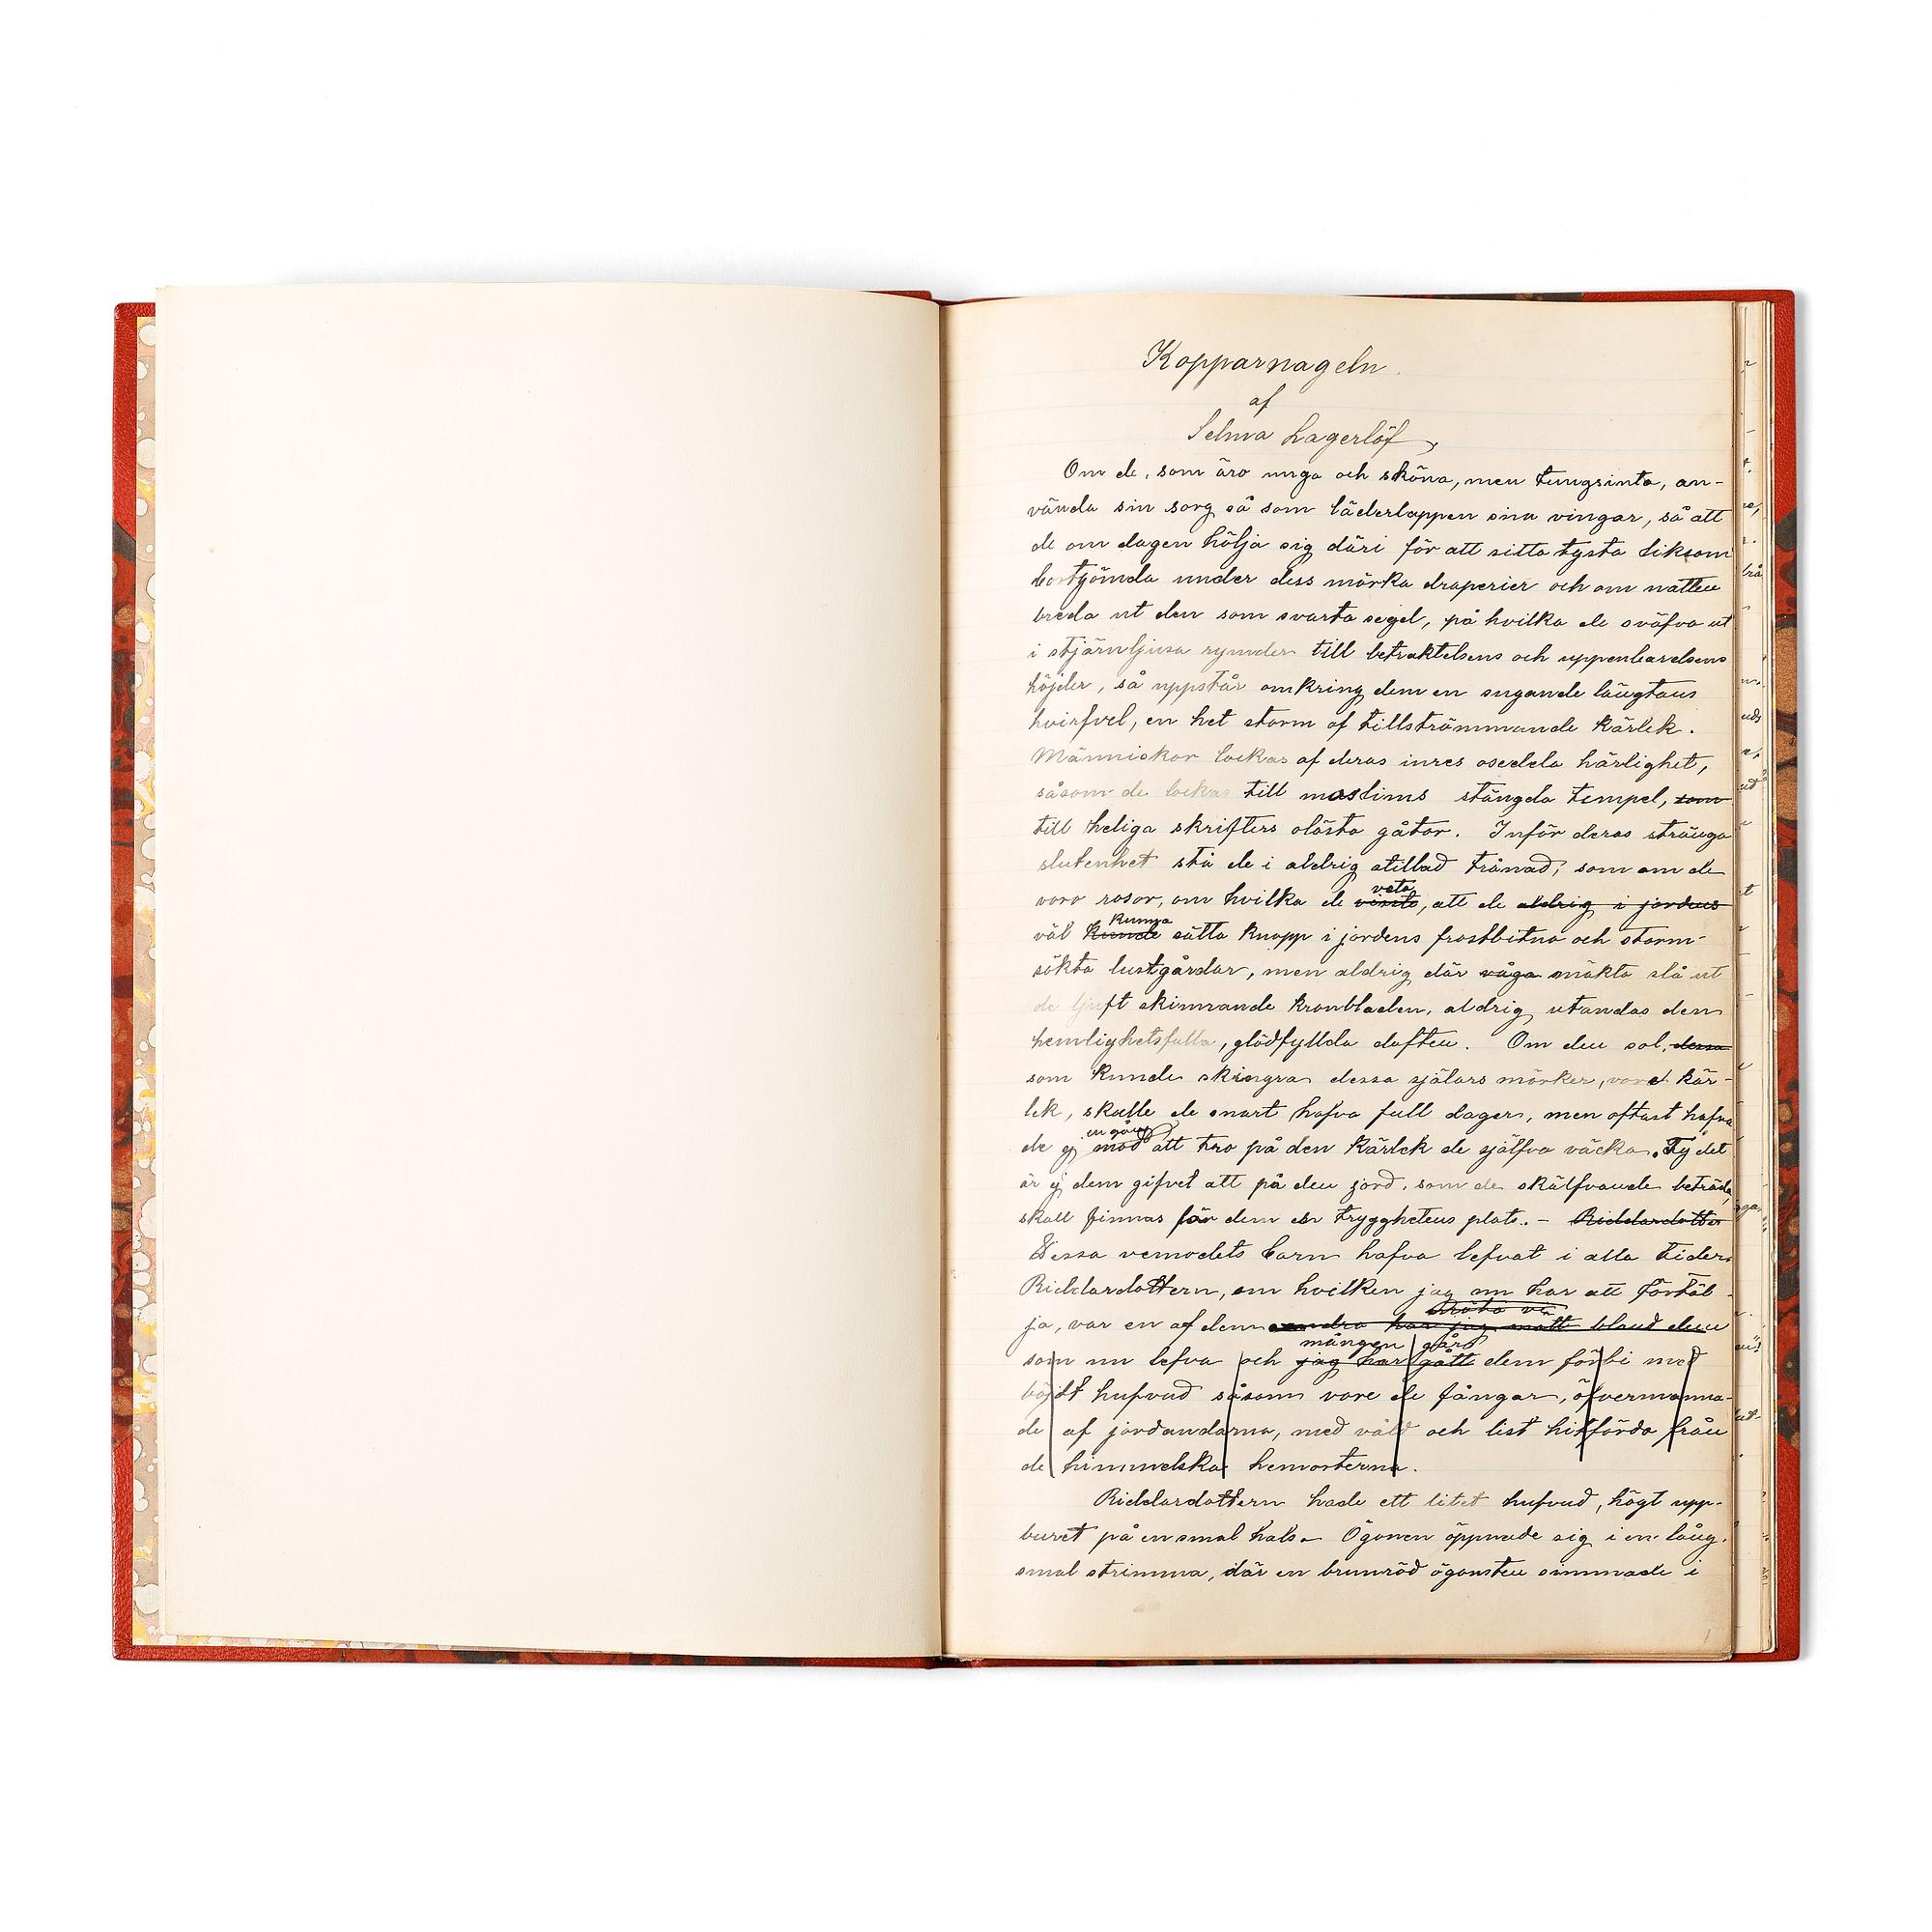 Kopparnageln.
af
Selma Lagerlöf,
Om de, som äro unga och sköna, men tungsinta, an-
vända sin sorg så som läderlappen sina vingar, så att
de om dagen hölja sig däri för att sitta tysta liksom
bortgömda under dess mörka draperier och om natten
breda ut den som svarta segel, på hvilka de sväfva ut
i stjärnljusa rymder till betraktelsens och uppenbarelsens
höjder, så uppstår omkring dem en sugande längtans
hvirfvel, en het storm af tillströmmande kärlek.
Människor lockas af deras inres osedda härlighet,
såsom de lockas till moslims stängda tempel, som
till heliga skrifters olösta gåtor. Inför deras stränga
slutenhet stå de i aldrig stillad trånad, som om de
veta
voro rosor, om hvilka de visste, att de aldrig i jordens
kunna
väl kunde sätta knopp i jordens frostbitna och storm-
sökta lustgårdar, men aldrig där våga mäkta slå ut
de ljuft skimrande kronbladen, aldrig utandas den
hemlighetsfulla, glödfyllda doften. Om den sol, dessa
som kunde skingra dessa själars mörker, vore kär-
lek, skulle de snart hafva full dager, men oftast hafva
en gång
de ej mod att tro på den kärlek de själfva väcka. Ty det
är ej dem gifvet att på den jord, som de skälfvande beträda,
skall finnas för dem en trygghetens plats. – Riddardotter
Dessa vemodets barn hafva lefvat i alla tider.
Riddardottern, om hvilken jag nu har att förtäl-
möta vi
ja, var en af dem andra har jag mött bland dem
mången går
som nu lefva och jag har gått dem förbi med
böjdt hufvud såsom vore de fångar, öfvermanna-
de af jordandarna, med våld och list hitförda från
de himmelska hemorterna.
Riddardottern hade ett litet hufvud, högt upp-
buret på en smal hals. Ögonen öppnade sig i en lång,
smal strimma, där en brunröd ögonsten simmade i
1